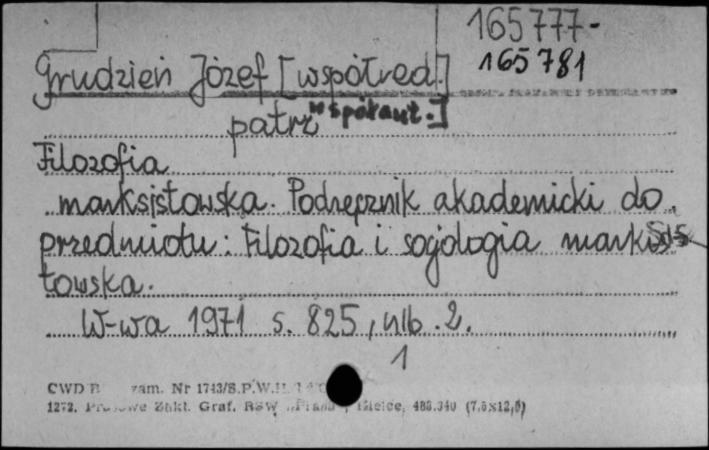 165777-
165781
Grudzień Józef [współred.]
współaut.]
patrz
Filozofia
marksistowska. Podręcznik akademicki do
przedmiotu: Filozofia i socjologia marksis-
towska.
W-wa 1971 s. 825, nlb. 2.
1
CWD zam. Nr 1743/S.P.W.
1272. Zakł. Graf. RSW „Prasa", Kielce, 488.340 (7,5x12,5)